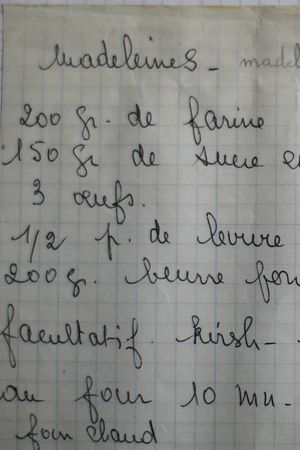 Madeleines - madel
200 gr. de farine
150 gr de sucre en
3 œufs.
1/2 p. de levure
200 gr. beurre fon
facultatif. kirsh -
au four 10 mn.
four chaud